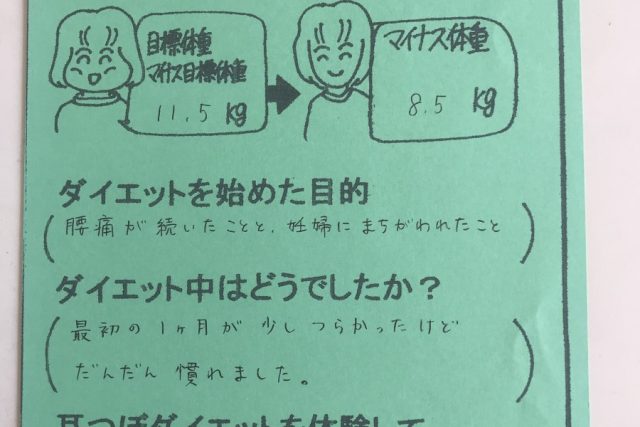 目標体重
マイナス目標体重
11.5 kg
マイナス体重
8.5 kg
ダイエットを始めた目的
(腰痛が続いたことと、妊婦にまちがわれたこと)
ダイエット中はどうでしたか?
(最初の1ヶ月が少しつらかったけど
だんだん慣れました。)
耳つぼダイエットを体験して